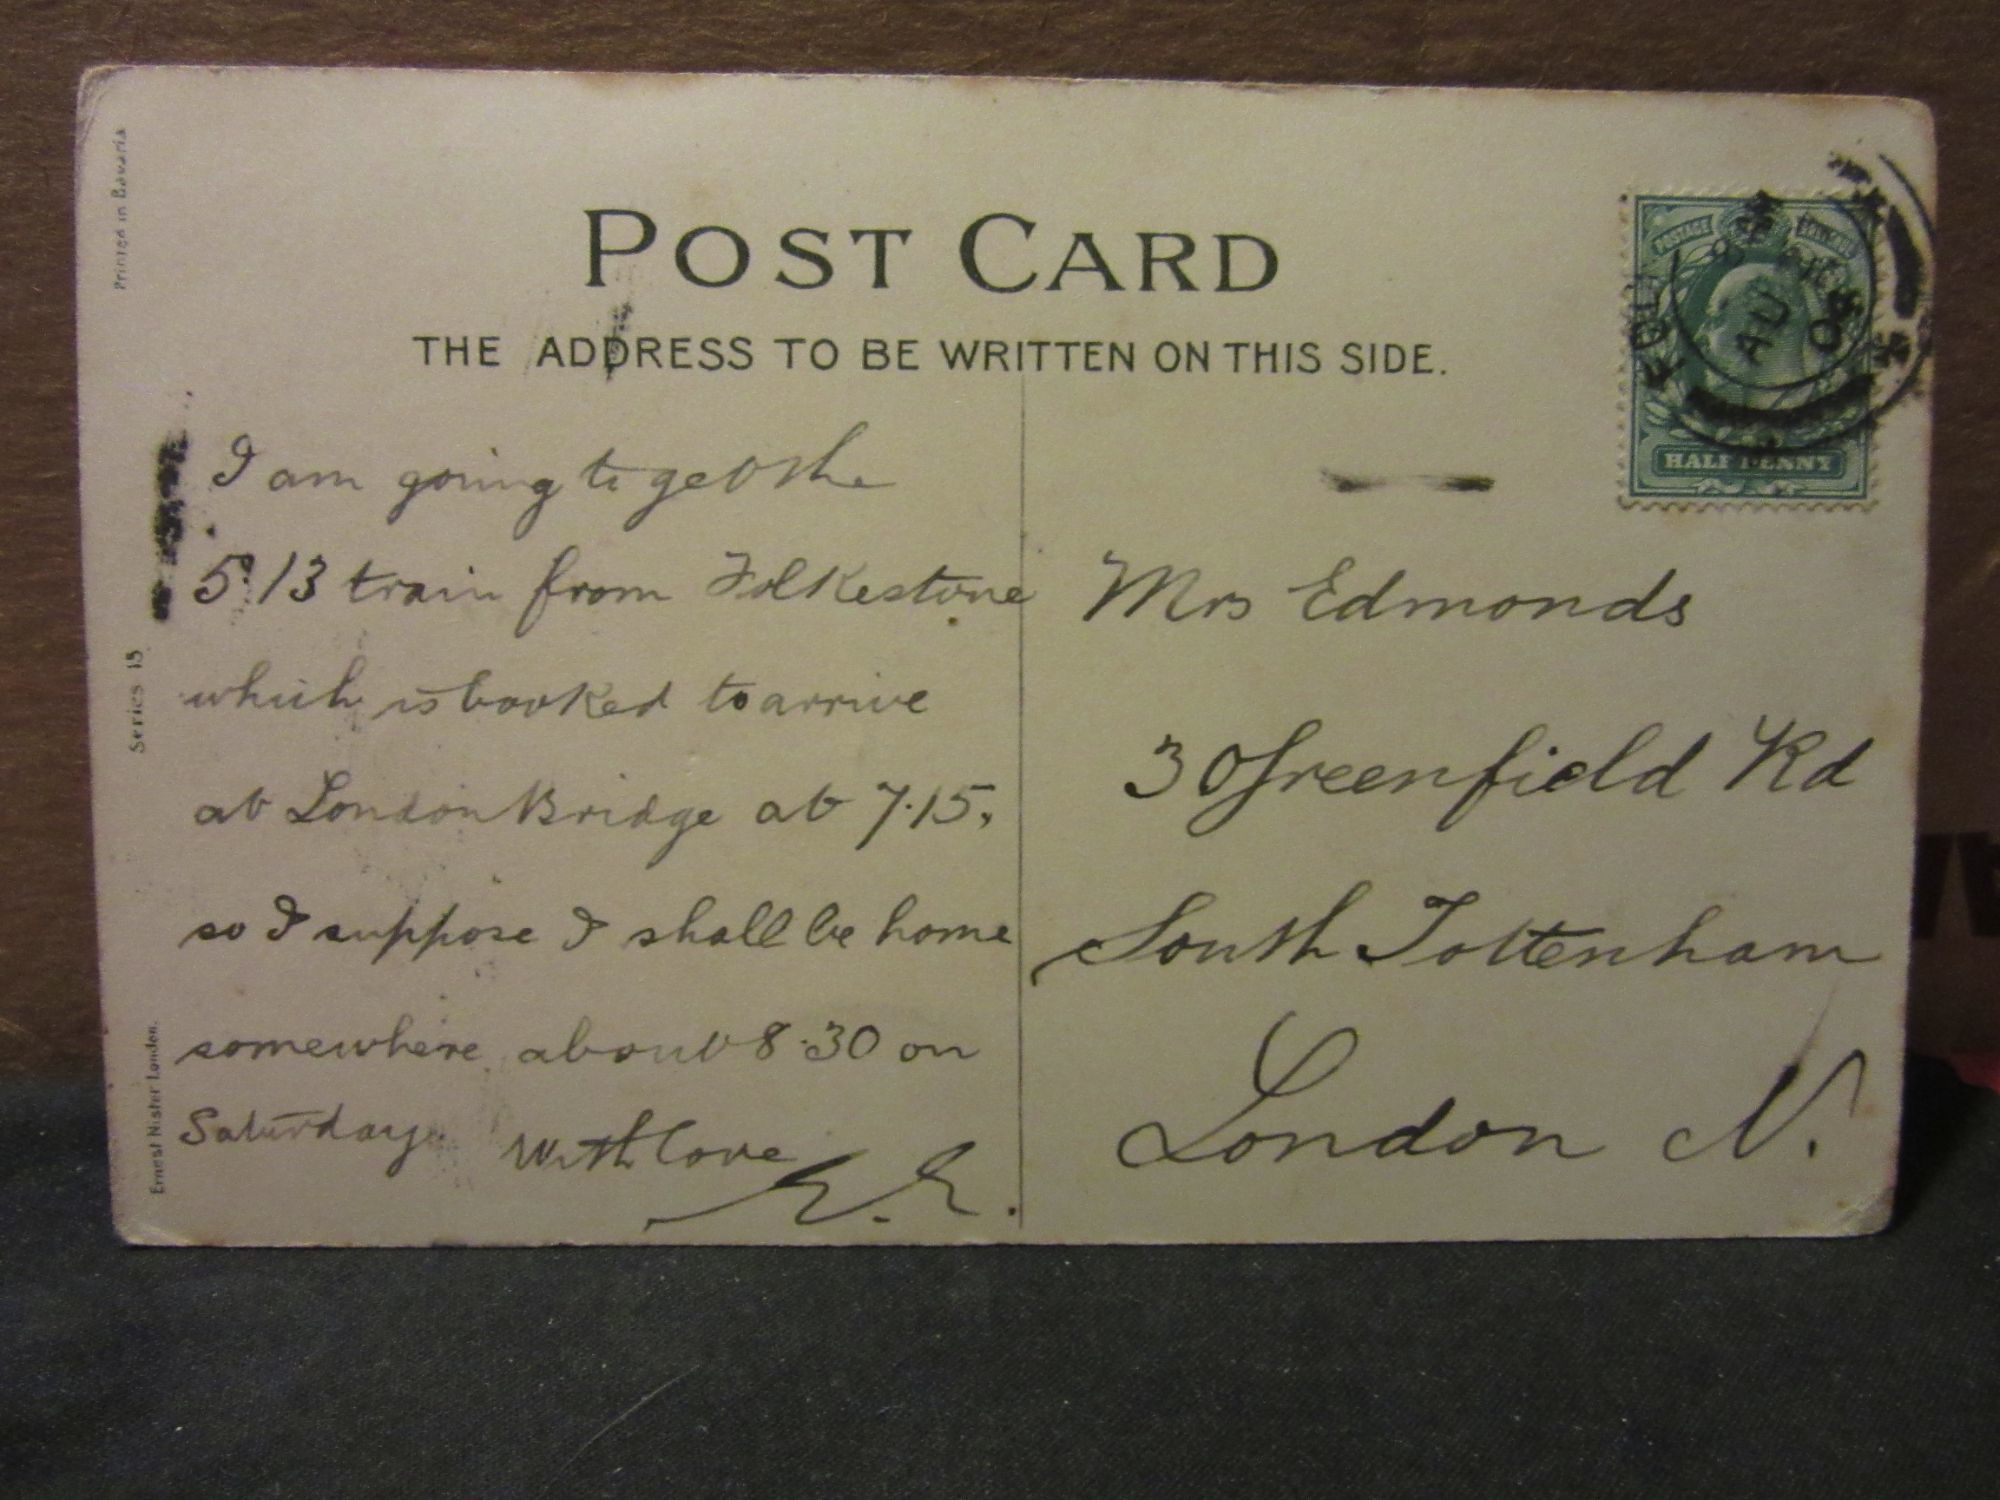 Printed in Bavaria
POST CARD
THE ADDRESS TO BE WRITTEN ON THIS SIDE.
POSTAGE
HALF PENNY
FOL
AU
08
I am going to get the
5.13 train from Folkestone
which is booked to arrive
at London Bridge at 7.15,
so I suppose I shall be home
somewhere about 8.30 on
Saturday. With love
E. E.
Mrs Edmonds
30 Greenfield Rd
South Tottenham
London N.
Series 15
Ernest Nister London.